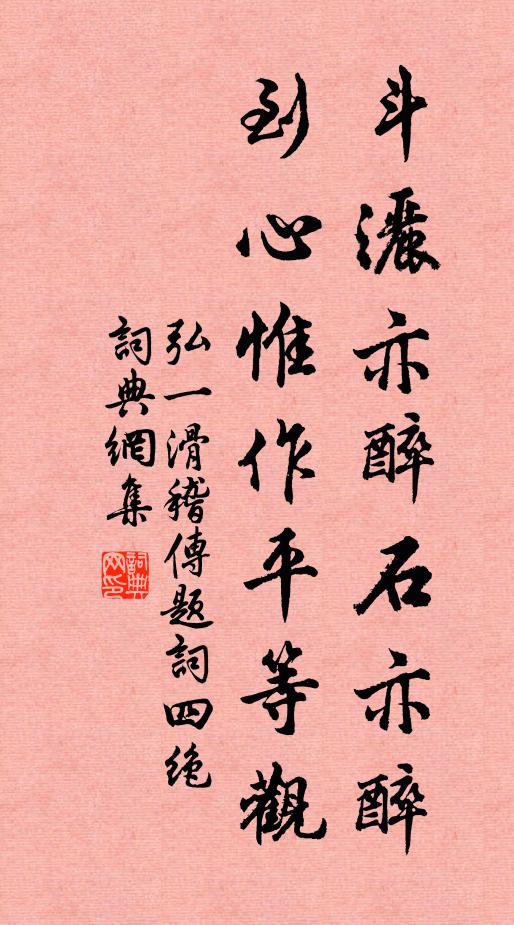 斗灑亦醉石亦醉
到心惟作平等觀
弘一滑稽傳題詞四絶
詞典網集
詞典网印